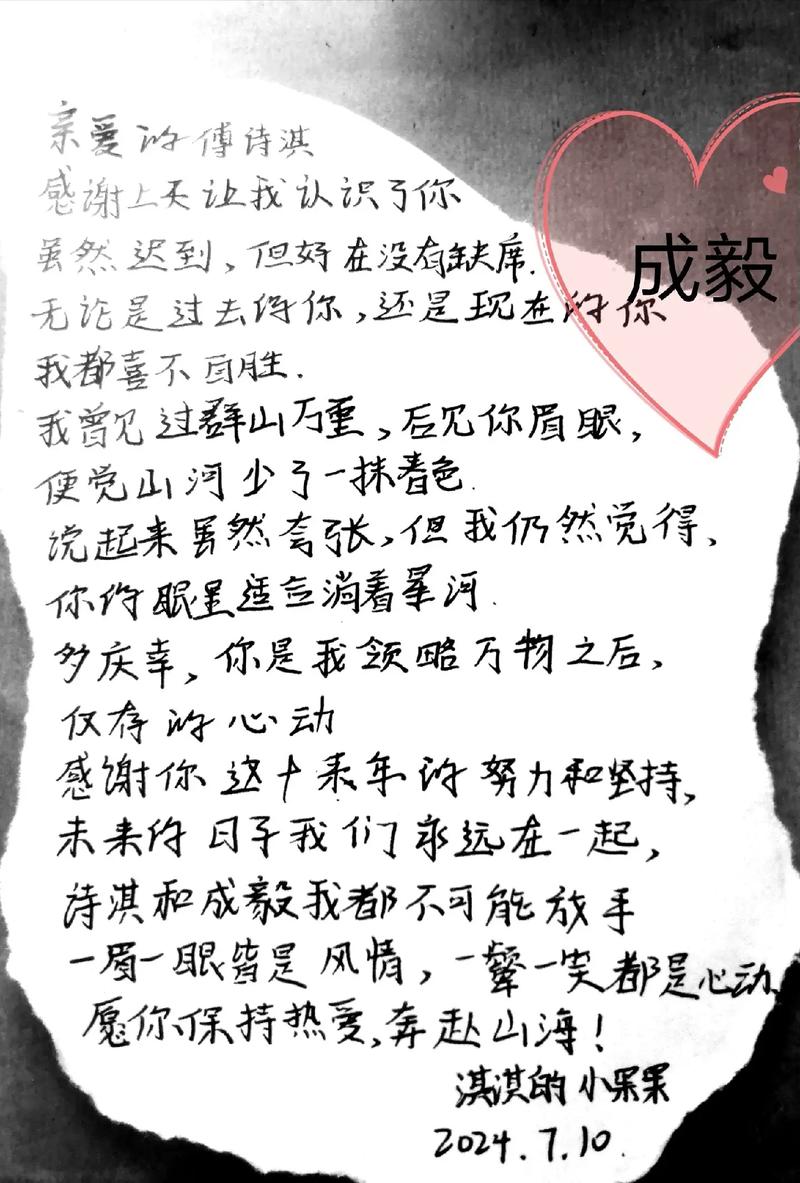 亲爱的傅诗淇
感谢上天让我认识了你
虽然迟到，但好在没有缺席.
无论是过去得你，还是现在的你
我都喜不自胜.
我曾见过群山万重，后见你眉眼，
便觉山河少了一抹春色.
说起来虽然夸张，但我仍然觉得，
你的眼里淌着星河.
多庆幸，你是我领略万物之后，
仅存的心动
感谢你这十来年的努力和坚持，
未来的日子我们永远在一起，
诗淇和成毅我都不可能放手
一眉一眼皆是风情，一颦一笑都是心动.
愿你保持热爱，奔赴山海！
淇淇的小果果
2024.7.10.
成毅